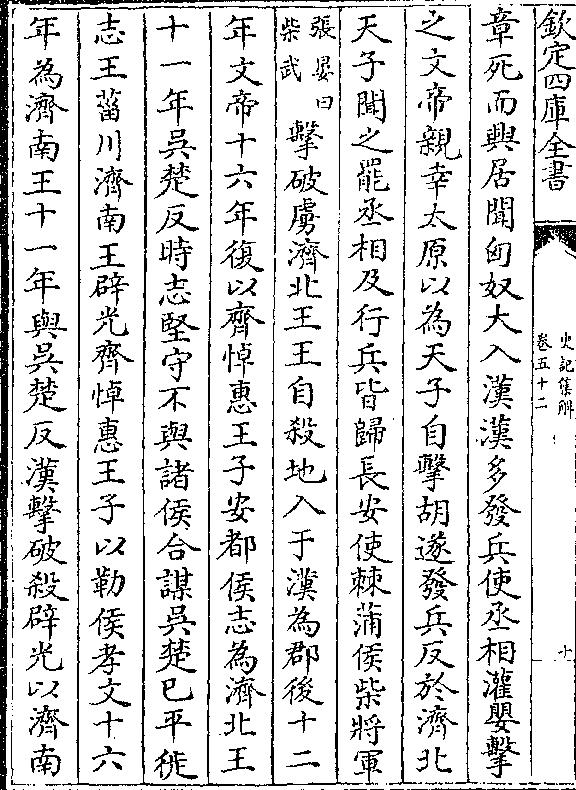 欽定四庫全書
史記集解
卷五十二
十
章死而興居聞匈奴大入漢漢多發兵使丞相灌嬰擊
之文帝親幸太原以為天子自擊胡遂發兵反於濟北
天子聞之罷丞相及行兵皆歸長安使棘蒲侯柴將軍
張晏曰
柴武
擊破虜濟北王王自殺地入于漢為郡後十二
年文帝十六年復以齊悼惠王子安都侯志為濟北王
十一年吳楚反時志堅守不與諸侯合謀吳楚已平徙
志王菑川濟南王辟光齊悼惠王子以勒侯孝文十六
年為濟南王十一年與吳楚反漢擊破殺辟光以濟南